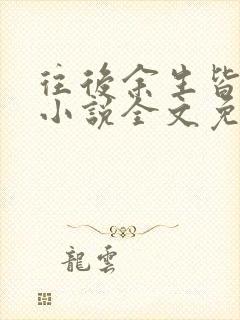 往後余生皆
小說全文免
龍雲